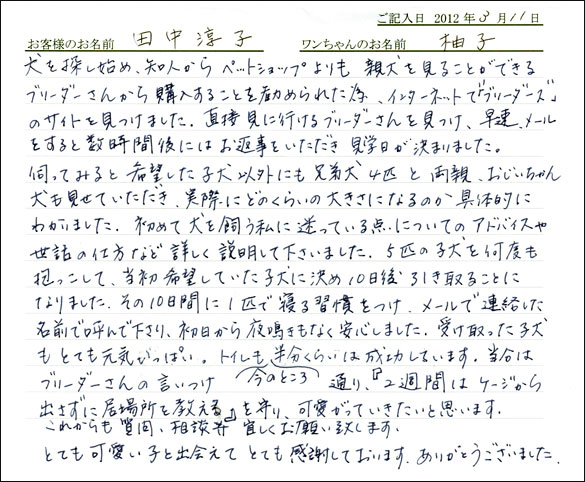 ご記入日 2012年3月11日
お客様のお名前 田中淳子 ワンちゃんのお名前 柚子
犬を探し始め、知人から ペットショップよりも 親犬を見ることができる
ブリーダーさんから購入することを勧められた為、インターネットで「ブリーダーズ」
のサイトを見つけました。直接見に行けるブリーダーさんを見つけ、早速、メール
をすると数時間後にはお返事をいただき 見学日が決まりました。
伺ってみると 希望した子犬以外にも兄弟犬4匹と両親、おじいちゃん
犬も見せていただき、実際にどのくらいの大きさになるのか具体的に
わかりました。初めて犬を飼う私に迷っている点についてのアドバイスや
世話の仕方など詳しく説明して下さいました。5匹の子犬を何度も
抱っこして、当初希望していた子犬に決め10日後引き取ることに
なりました。その10日間に1匹で寝る習慣をつけ、メールで連絡した
名前で呼んで下さり、初日から夜鳴きもなく安心しました。受け取った子犬
も とても元気がいっぱい。トイレも 半分くらいは成功しています。当分は
ブリーダーさんの言いつけ 今のところ 通り、『2週間はケージから
出さずに居場所を教える』を守り、可愛がっていきたいと思います。
これからも質問、相談等 宜しくお願い致します。
とても可愛い子と出会えて とても感謝しております。ありがとうございました。